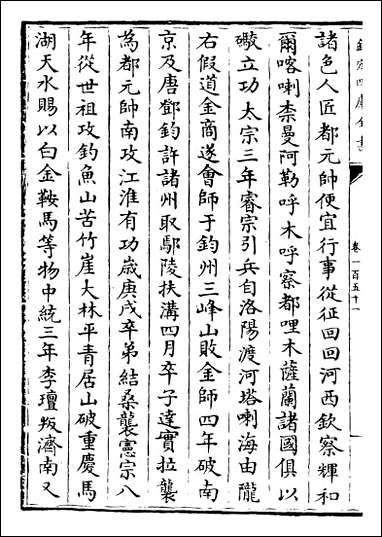 欽定四庫全書
卷一百五十一
諸色人匠都元帥便宜行事從征回回河西欽察輝和
爾喀喇柰曼阿勒呼木呼察都哩木薩蘭諸國俱以
礮立功太宗三年睿宗引兵自洛陽渡河塔喇海由隴
右假道金商遂會師于鈞州三峰山敗金師四年破南
京及唐鄧鈞許諸州取鄢陵扶溝四月卒子達實拉襲
為都元帥南攻江淮有功歲庚戌卒弟結桑襲憲宗八
年從世祖攻釣魚山苦竹崖大林平青居山破重慶馬
湖天水賜以白金鞍馬等物中統三年李璮叛濟南又